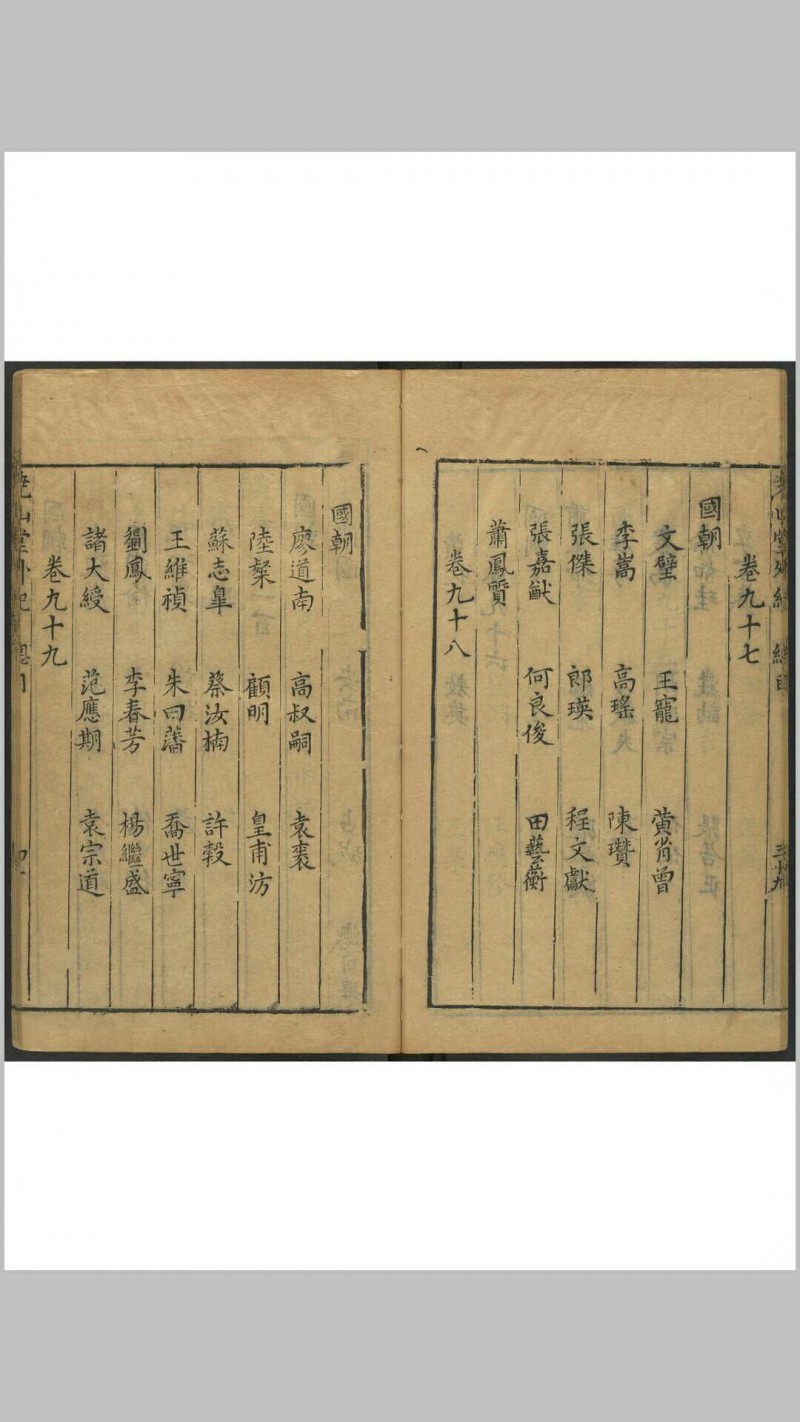 卷九十七
國朝
文璧 王寵 黄省曾
李嵩 高瑤 陳瓚
張傑 郎瑛 程文獻
張嘉猷 何良俊 田藝衡
蕭鳳質
卷九十八
國朝
廖道南 高叔嗣 袁袠
陸粲 顧明 皇甫汸
蘇志臯 蔡汝楠 許榖
王維禎 朱曰藩 喬世寧
劉鳳 李春芳 楊繼盛
諸大綬 范應期 袁宗道
卷九十九
堯山堂外紀 總目